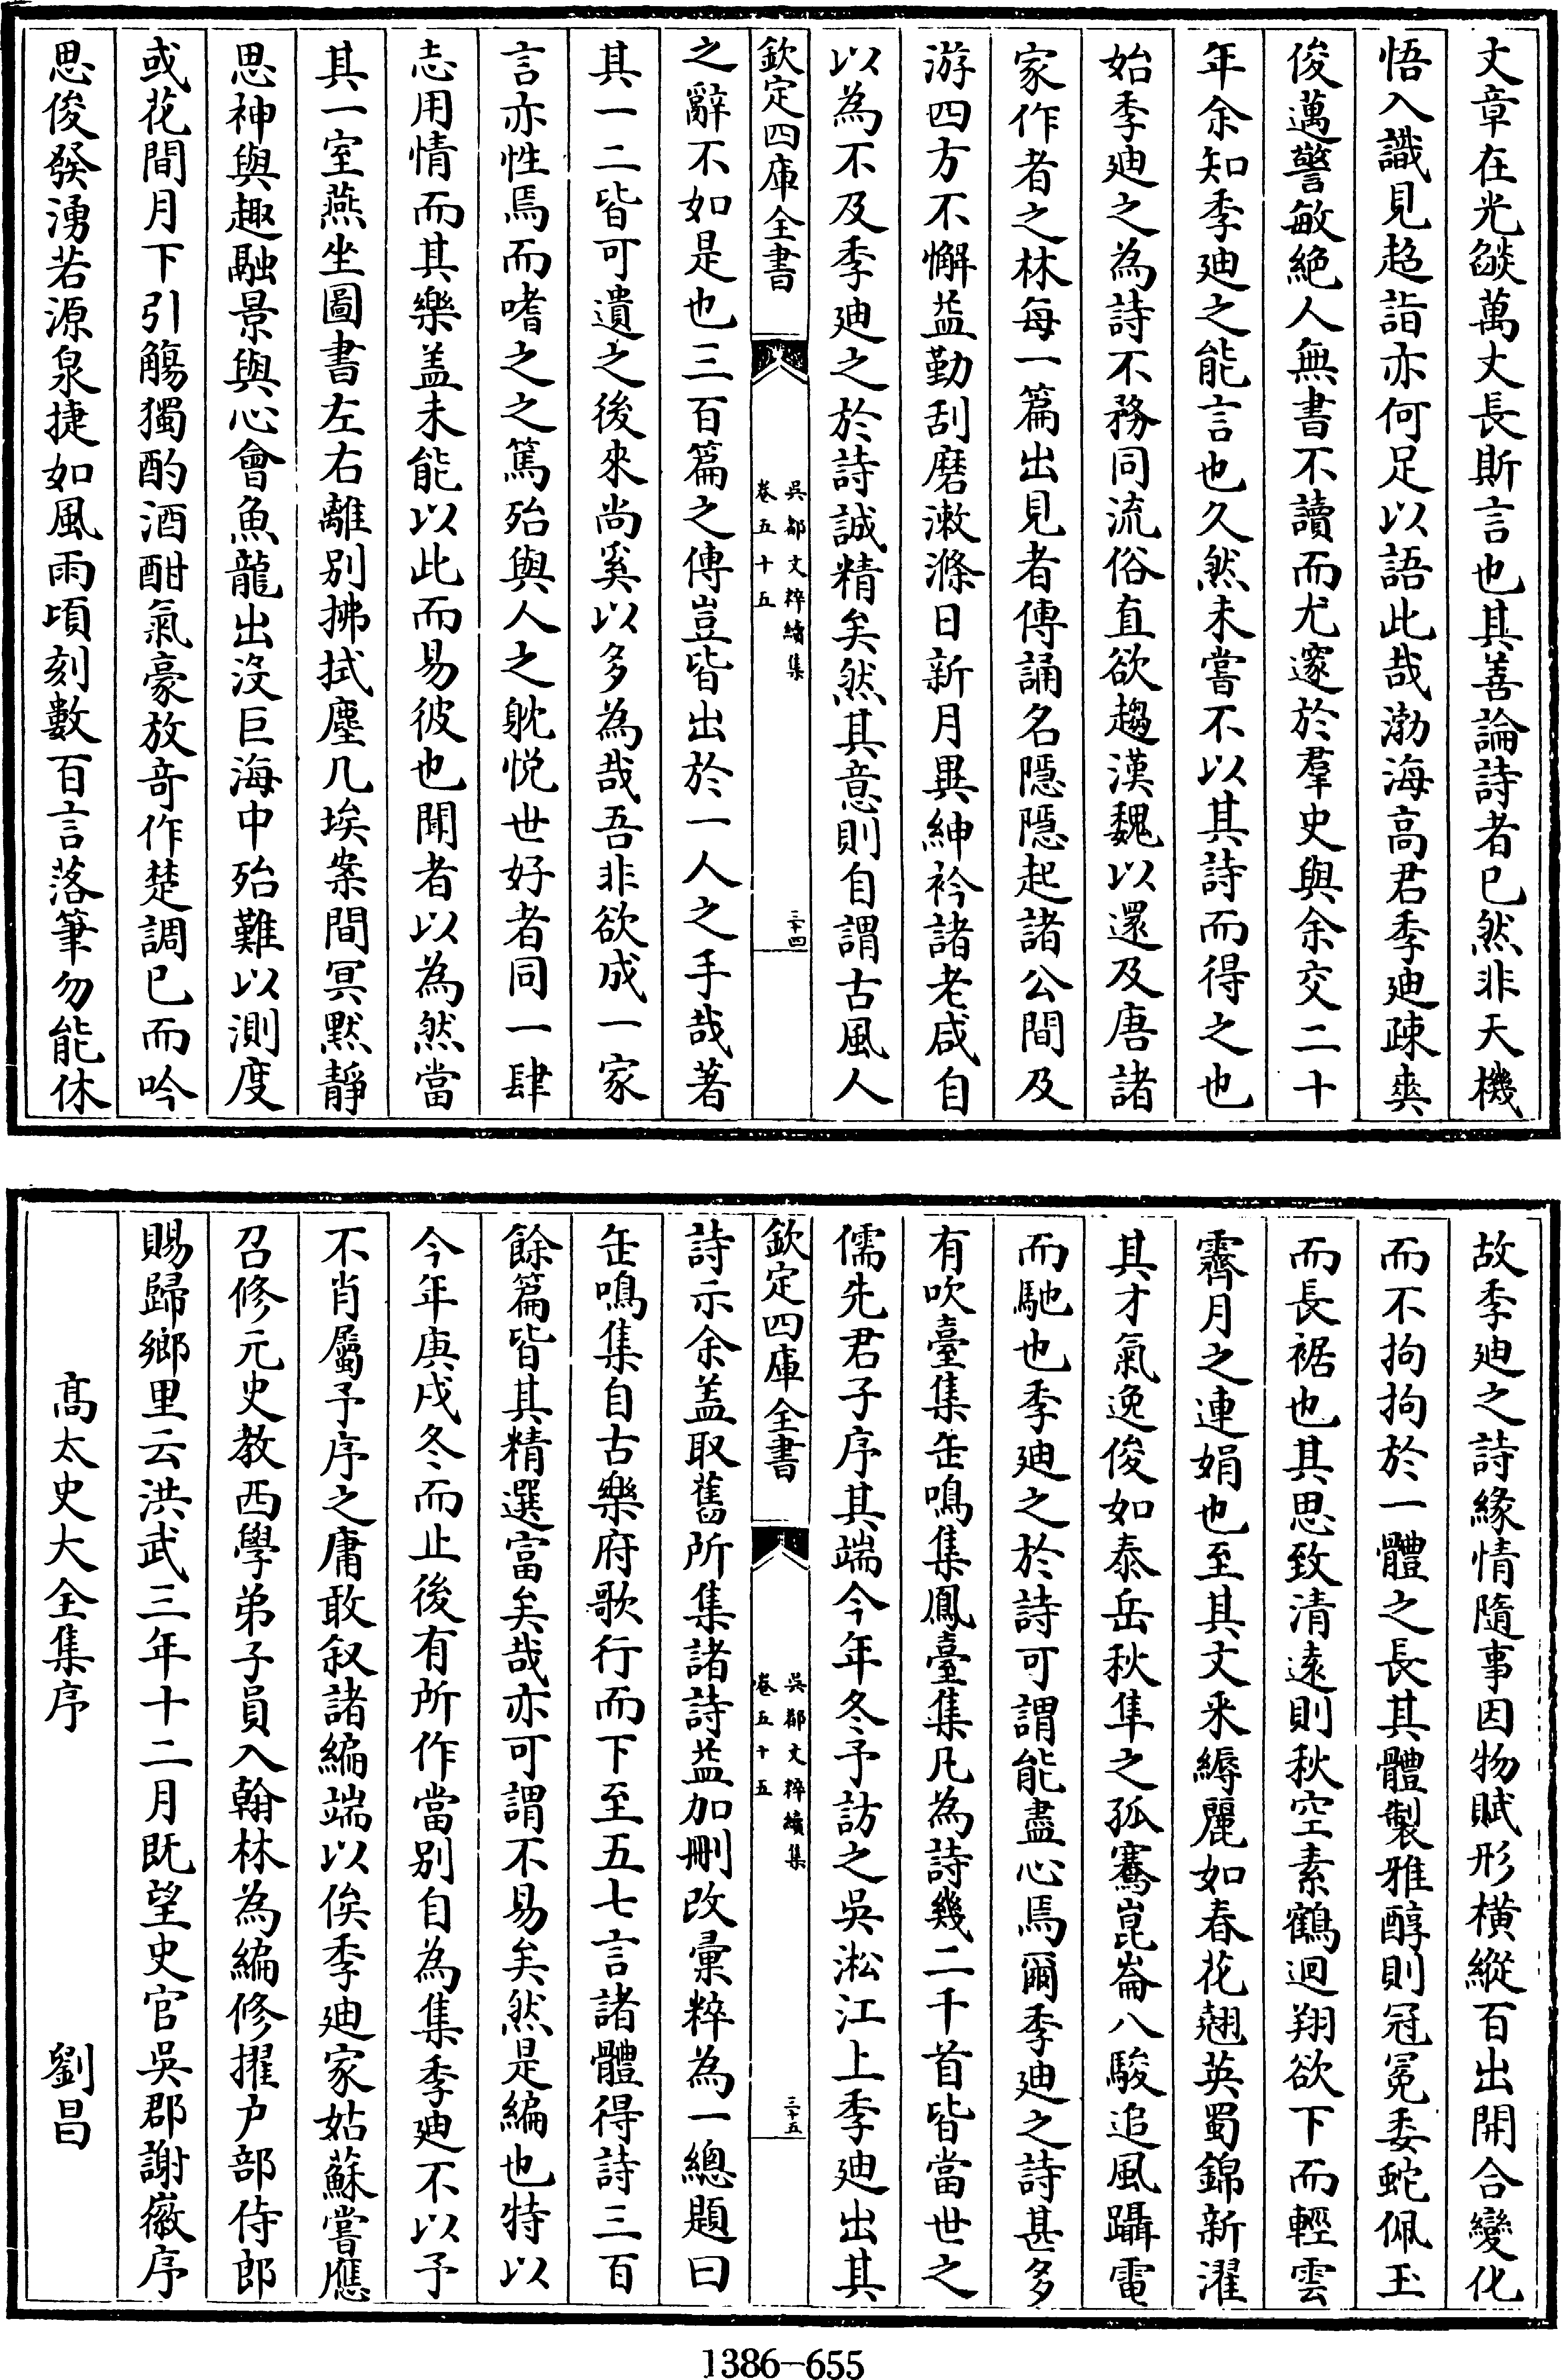 文章在光燄萬丈長斯言也其善論詩者已然非天機
悟入識見超詣亦何足以語此哉渤海高君季廸疎爽
俊邁警敏絶人無書不讀而尤邃於羣史與余交二十
年余知季廸之能言也久然未嘗不以其詩而得之也
始季廸之為詩不務同流俗直欲趨漢魏以還及唐諸
家作者之林每一篇出見者傳誦名隠隠起諸公間及
游四方不懈益勤刮磨漱滌日新月異紳衿諸老咸自
以為不及季廸之於詩誠精矣然其意則自謂古風人
欽定四庫全書
吳都文粹續集
卷五十五
三十四
之辭不如是也三百篇之傳豈皆出於一人之手哉著
其一二皆可遺之後來尚奚以多為哉吾非欲成一家
言亦性焉而嗜之之篤殆與人之躭悅世好者同一肆
志用情而其樂盖未能以此而易彼也聞者以為然當
其一室燕坐圖書左右離别拂拭塵几埃案間冥黙靜
思神與趣融景與心會魚龍出沒巨海中殆難以測度
或花間月下引觴獨酌酒酣氣豪放奇作楚調已而吟
思俊發湧若源泉捷如風雨頃刻數百言落筆勿能休
故季廸之詩緣情隨事因物賦形横縱百出開合變化
而不拘拘於一體之長其體製雅醇則冠冕委蛇佩玉
而長裾也其思致清遠則秋空素鶴迴翔欲下而輕雲
霽月之連娟也至其文采縟麗如春花翹英蜀錦新濯
其才氣逸俊如泰岳秋隼之孤騫崑崙八駿追風躡電
而馳也季廸之於詩可謂能盡心焉爾季廸之詩甚多
有吹臺集缶鳴集鳳臺集凡為詩幾二千首皆當世之
儒先君子序其端今年冬予訪之吳淞江上季廸出其
欽定四庫全書
吳都文粹續集
卷五十五
三十五
詩示余盖取舊所集諸詩益加刪改彙粹為一總題曰
缶鳴集自古樂府歌行而下至五七言諸體得詩三百
餘篇皆其精選富矣哉亦可謂不易矣然是編也特以
今年庚戌冬而止後有所作當别自為集季廸不以予
不肖屬予序之庸敢叙諸編端以俟季廸家姑蘇嘗應
召修元史教西學弟子員入翰林為編修擢户部侍郎
賜歸鄉里云洪武三年十二月既望史官吳郡謝徽序
髙太史大全集序　劉昌
1386-655